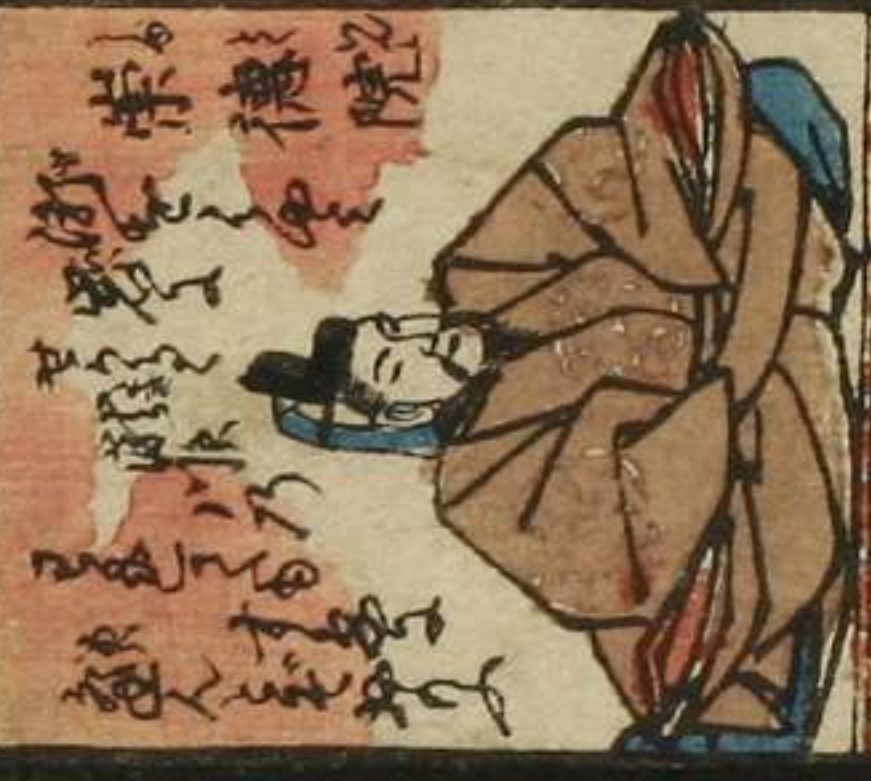 崇徳院
瀬をはやみ
岩に
せかるゝ
瀧川の
われても
すゑに
逢んとぞおもふ